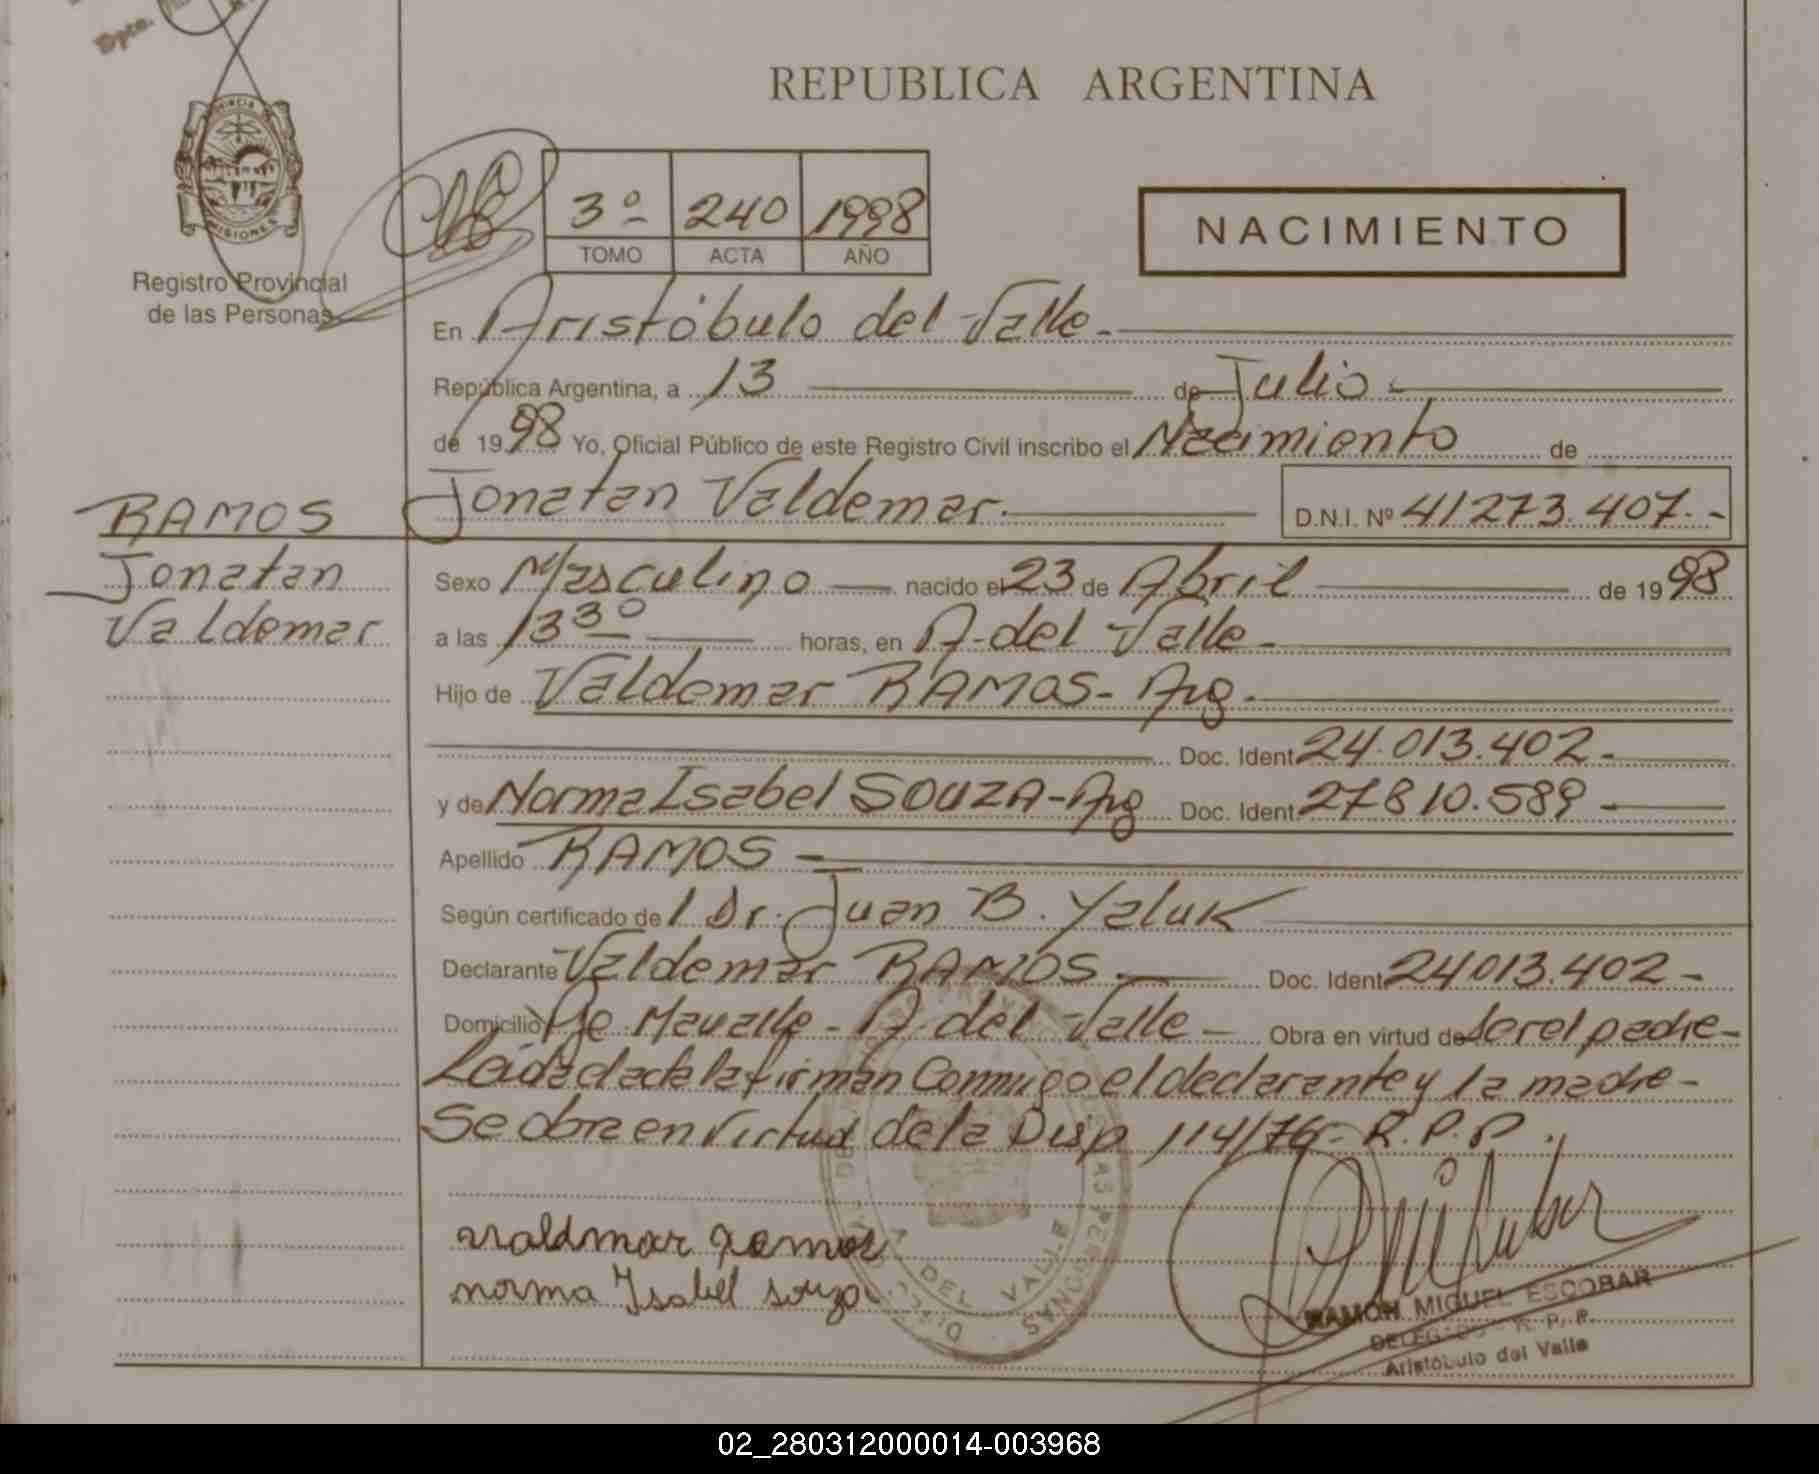 Dpto.
REPUBLICA ARGENTINA
PROVINCIA DE MISIONES
Registro Provincial
de las Personas
3º 240 1998
TOMO ACTA AÑO
NACIMIENTO
En Aristóbulo del Valle.
República Argentina, a 13 de Julio
de 1998 Yo, Oficial Público de este Registro Civil inscribo el Nacimiento de
Jonatan Valdemar. D.N.I. Nº 41273.407.-
RAMOS
Jonatan
Valdemar
Sexo Masculino nacido el 23 de Abril de 1998
a las 13 30 horas, en A. del Valle
Hijo de Valdemar RAMOS- Arg.
Doc. Ident. 24.013.402
y de Norma Isabel SOUZA-Arg Doc. Ident. 27810.589
Apellido RAMOS
Según certificado de l Dr. Juan B. Yaluk
Declarante Valdemar RAMOS. Doc. Ident. 24013.402-
Domicilio A. del Valle Obra en virtud de ser el padre-
Leída el acta la firman Conmigo el declarante y la madre-
Se obra en virtud de la Disp 114/76- R.P.P.
valdmar ramos
norma Isabel souza
A. DEL VALLE
RAMON MIGUEL ESCOBAR
DELEGADO - R. P. P.
Aristóbulo del Valle
02_280312000014-003968